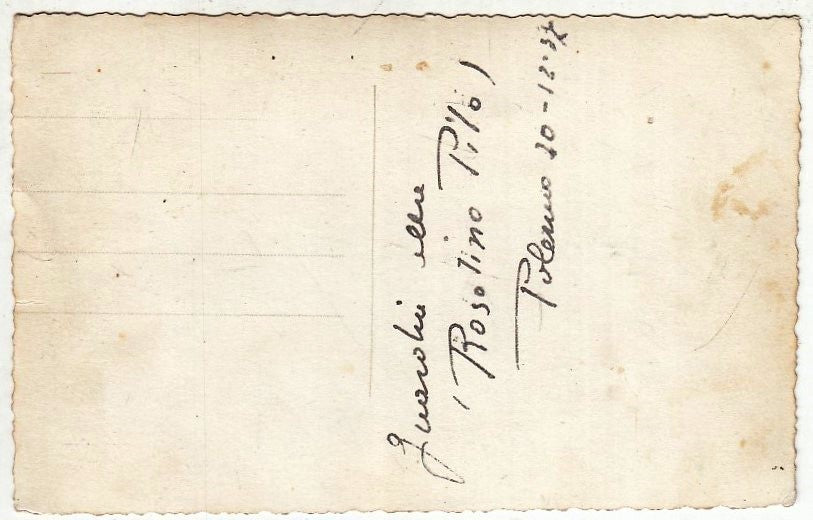 Guardie alla
(Rosolino Pilo)
Palermo 20-12-37